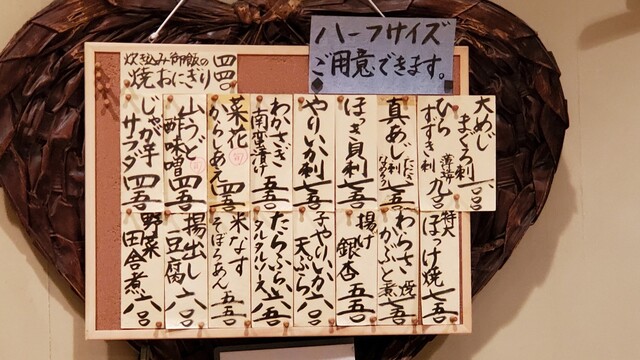 ハーフサイズ
ご用意できます。
炊き込み御飯の
焼おにぎり 四四〇
大めじ
まぐろ刺 一〇〇
ひら
すずき刺
薄造
九〇
真あじ刺
たたき
なめろう
七五
ほっき貝刺 七五
やりいか刺 七五
わかさぎ
南蛮漬け 五五
菜花
からしあえ 四五
山うど
酢味噌 四五
じゃが芋
サラダ 四五
特大
ほっけ焼 七五
わらさ焼
かぶと煮 七五
揚げ
銀杏 五五
子やりいか
天ぷら 六〇
たらふらい
タルタルソース 六五
米なす
そぼろあん 五五
揚出し
豆腐 六〇
野菜
田舎煮 六〇